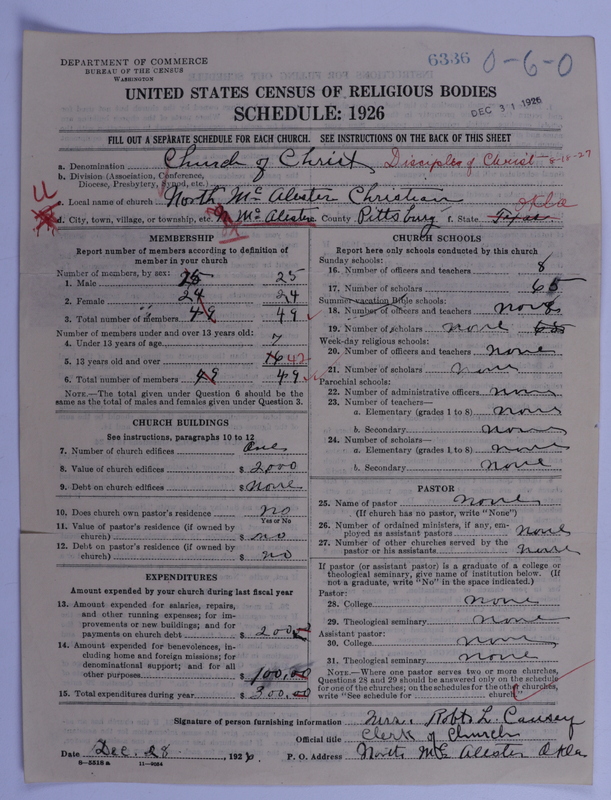 DEPARTMENT OF COMMERCE
BUREAU OF THE CENSUS
WASHINGTON
6336 0-6-0
UNITED STATES CENSUS OF RELIGIOUS BODIES
SCHEDULE: 1926
DEC 31 1926
FILL OUT A SEPARATE SCHEDULE FOR EACH CHURCH. SEE INSTRUCTIONS ON THE BACK OF THIS SHEET
a. Denomination Church of Christ Disciples of Christ 8-18-27
b. Division (Association, Conference, Diocese, Presbytery, Synod, etc.)
U
c. Local name of church North McAlester Christian
Okla
d. City, town, village, or township, etc. N McAlester County Pittsburg f. State
MEMBERSHIP
Report number of members according to definition of member in your church
Number of members, by sex:
1. Male 25 25
2. Female 24 24
3. Total number of members 49 49
Number of members under and over 13 years old:
4. Under 13 years of age 7
5. 13 years old and over 16 42
6. Total number of members 49 49
NOTE.—The total given under Question 6 should be the same as the total of males and females given under Question 3.
CHURCH BUILDINGS
See instructions, paragraphs 10 to 12
7. Number of church edifices One
8. Value of church edifices $ 2000
9. Debt on church edifices $ None
10. Does church own pastor's residence no
Yes or No
11. Value of pastor's residence (if owned by church) $ no
12. Debt on pastor's residence (if owned by church) $ no
EXPENDITURES
Amount expended by your church during last fiscal year
13. Amount expended for salaries, repairs, and other running expenses; for improvements or new buildings; and for payments on church debt $ 200
14. Amount expended for benevolences, including home and foreign missions; for denominational support; and for all other purposes $ 100,00
15. Total expenditures during year $ 300,00
CHURCH SCHOOLS
Report here only schools conducted by this church
Sunday schools:
16. Number of officers and teachers 8
17. Number of scholars 65
Summer vacation Bible schools:
18. Number of officers and teachers none
19. Number of scholars none 65
Week-day religious schools:
20. Number of officers and teachers none
21. Number of scholars none
Parochial schools:
22. Number of administrative officers none
23. Number of teachers—
a. Elementary (grades 1 to 8) none
b. Secondary none
24. Number of scholars—
a. Elementary (grades 1 to 8) none
b. Secondary none
PASTOR
25. Name of pastor none
(If church has no pastor, write "None")
26. Number of ordained ministers, if any, employed as assistant pastors none
27. Number of other churches served by the pastor or his assistants none
If pastor (or assistant pastor) is a graduate of a college or theological seminary, give name of institution below. (If not a graduate, write "No" in the space indicated.)
Pastor:
28. College none
29. Theological seminary none
Assistant pastor:
30. College none
31. Theological seminary none
NOTE.—Where one pastor serves two or more churches, Questions 28 and 29 should be answered only on the schedule for one of the churches; on the schedules for the other churches, write "See schedule for church"
Signature of person furnishing information Mrs. Robt L. Causey
Official title Clerk of Church
Date Dec. 28 1926 P. O. Address North McAlester Okla
8-5518a 11-9664